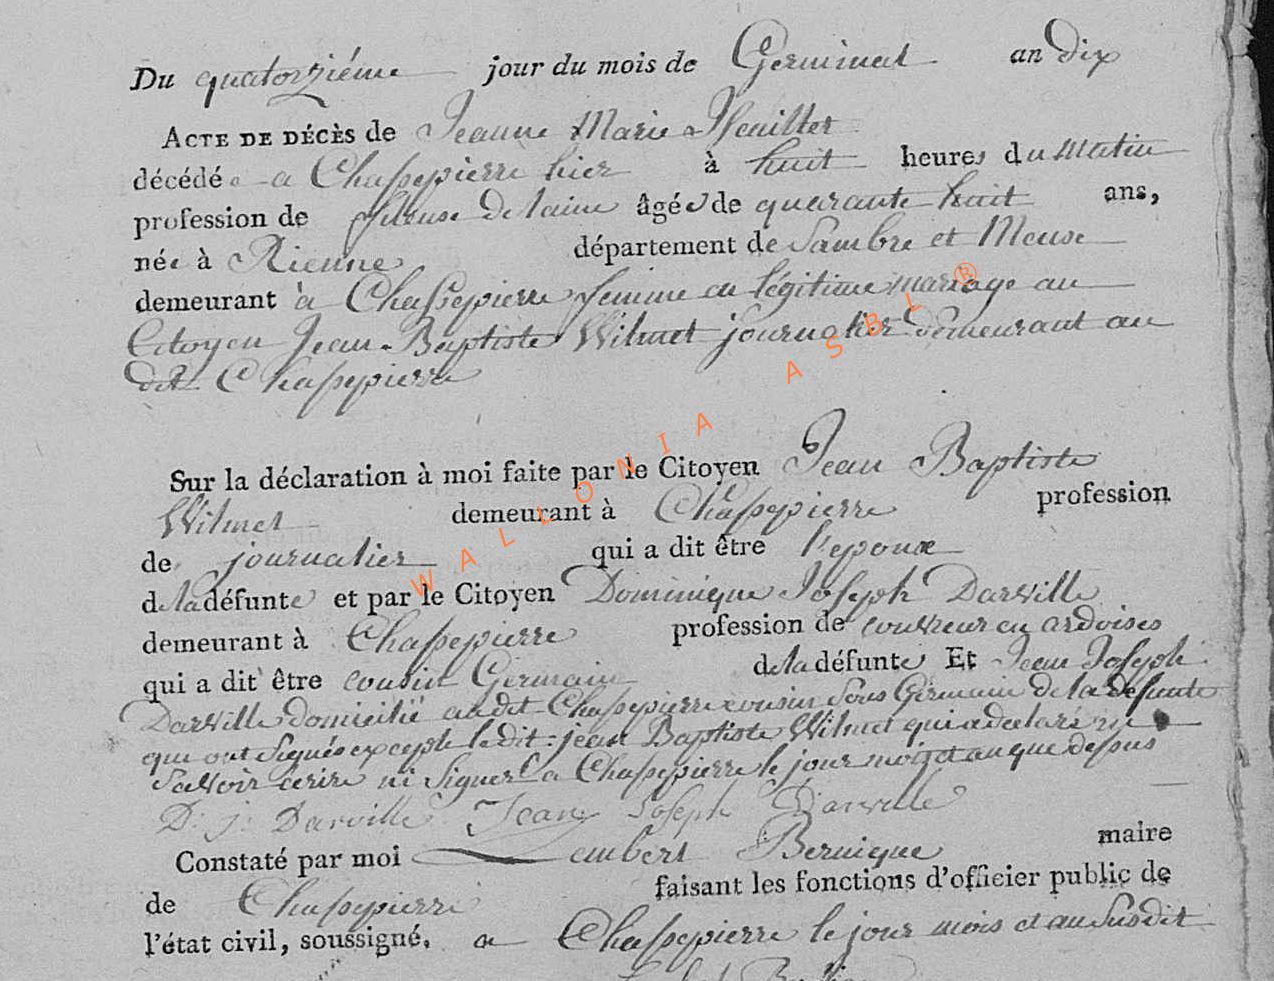 Du quatorziéme jour du mois de Germinal an dix
ACTE DE DÉCÈS de Jeanne Marie
décédée a Chassepierre hier à huit heures du matin
profession de fileuse de laine âgée de quarante huit ans,
née à Rienne département de Sambre et Meuse
demeurant à Chassepierre femme en légitime mariage au
Citoyen Jean Baptiste Wilmet journalier demeurant au
dit Chassepierre
Sur la déclaration à moi faite par le Citoyen Jean Baptiste
Wilmet demeurant à Chassepierre profession
de journalier qui a dit être l'epoux
de la défunte et par le Citoyen Dominique Joseph Darville
demeurant à Chassepierre profession de couvreur en ardoises
qui a dit être cousin Germain de la défunte Et Jean Joseph
Darville domicilié audit Chassepierre cousin sous Germain de la defunte
qui ont signés excepté ledit jean Baptiste Wilmet qui a declaré ne
savoir ecrire ni signer a Chassepierre le jour mois et an que dessus
D: j: Darville Jean Joseph Darville
Constaté par moi Lambert Bernique maire
de Chassepierre faisant les fonctions d'officier public de
l'état civil, soussigné, a Chassepierre le jour mois et an susdit
WALLONIA ASBL ®